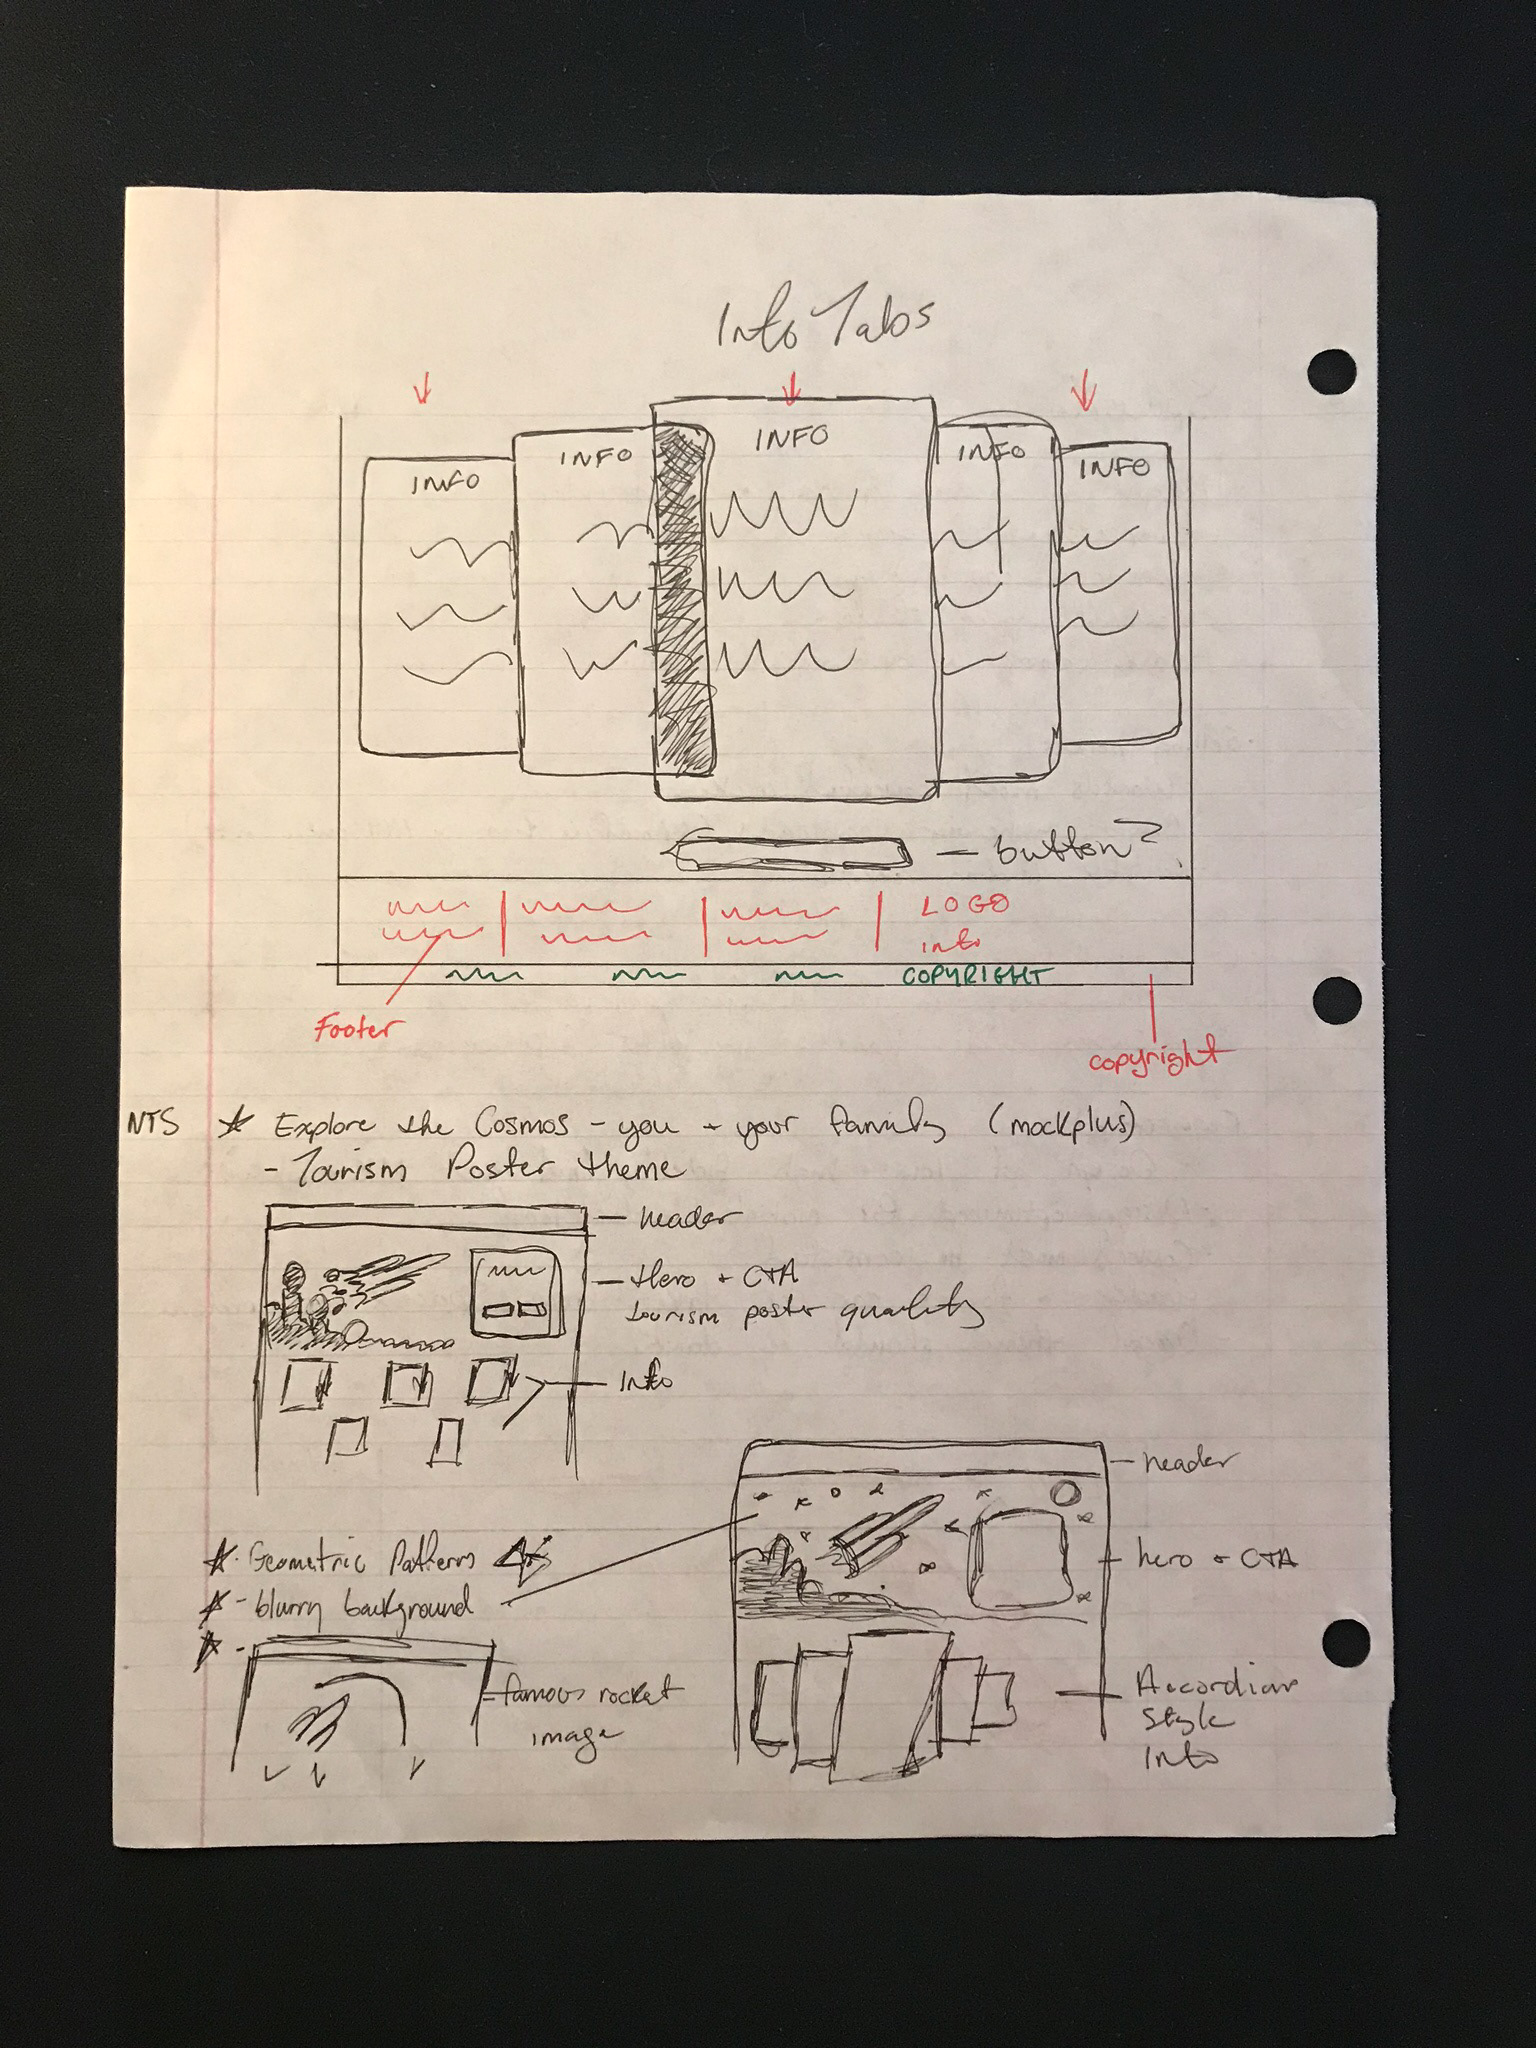 Info Tabs
INFO
INFO
INFO
INFO
INFO
button?
LOGO
info
COPYRIGHT
Footer
copyright
NTS ★ Explore the Cosmos - you + your family (mockplus)
- Tourism Poster theme
header
Hero + CTA
tourism poster quality
Info
header
★ - Geometric Patterns
★ - blurry background
hero + CTA
famous rocket
image
Accordian
Style
Info